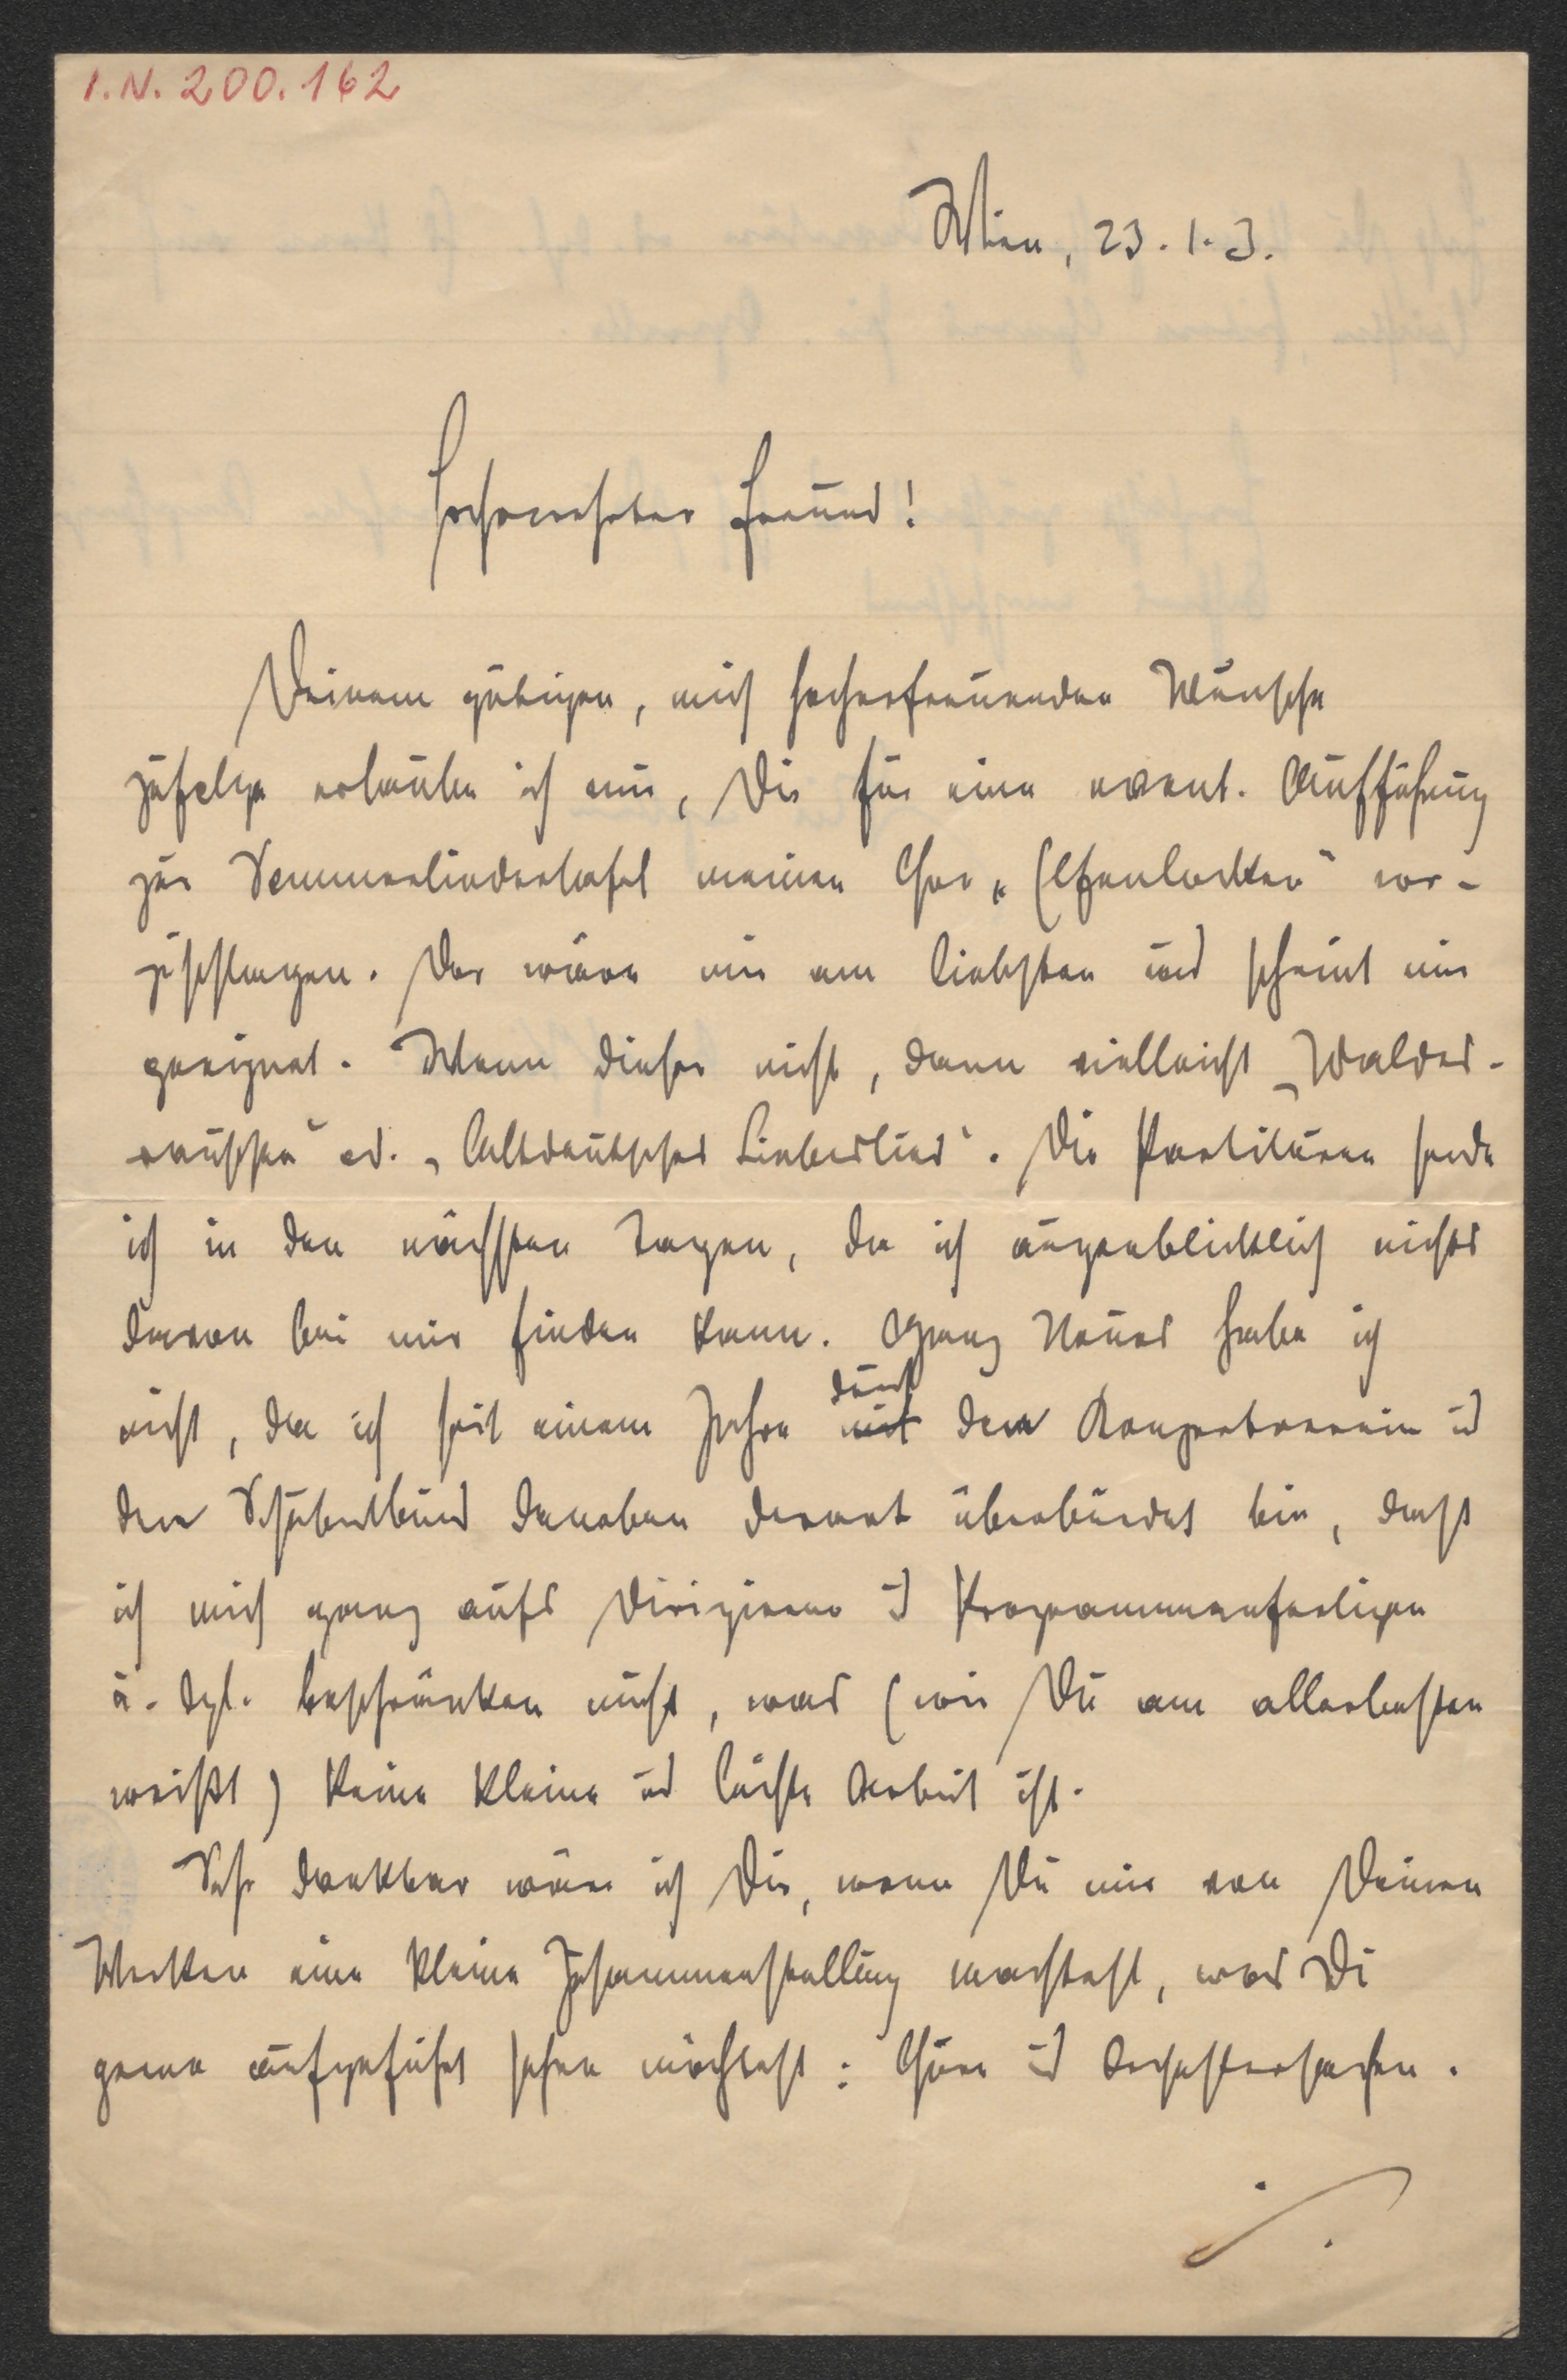 I.N. 200.162
Wien, 23.1.3.
Hochverehrter Freund!
Deinem gütigen, mich hocherfreuenden Wunsche
zufolge erlaube ich mir, Dir für eine event. Aufführung
zur Sommerliedertafel meinen Chor „Elfenlocken“ vor-
zuschlagen. Der wäre mir am liebsten und scheint mir
geeignet. Wenn dieser nicht, dann vielleicht „Waldes-
rauschen“ od. „Altdeutsches Liebeslied“. Die Partituren sende
ich in den nächsten Tagen, da ich augenblicklich nichts
davon bei mir finden kann. Ganz Neues habe ich
nicht, da ich seit einem Jahre durch mit den Konzertverein u
den Schubertbund daneben derart überbürdet bin, dass
ich mich ganz aufs Dirigieren u Programmanfertigen
u. dgl. beschränken muß, was (wie Du am allerbesten
weißt) keine kleine und leichte Arbeit ist.
Sehr dankbar wäre ich Dir, wenn Du mir von Deinen
Werken eine kleine Zusammenstellung machtest, was Du
gerne aufgeführt sehen möchtest: Chöre und Orchestersachen.